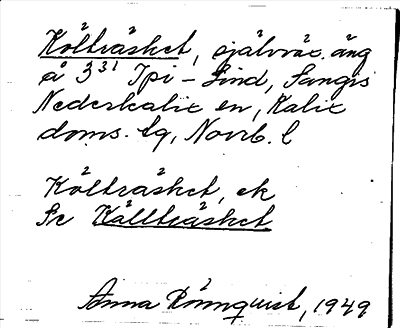 Költräsket, självväx. äng
å 3³¹ Ipi-Lind, Sangis
Nederkalix sn, Kalix
doms. lg, Norrb. l
Költräsket, ek
Se Källträsket
Anna Rönnquist, 1949